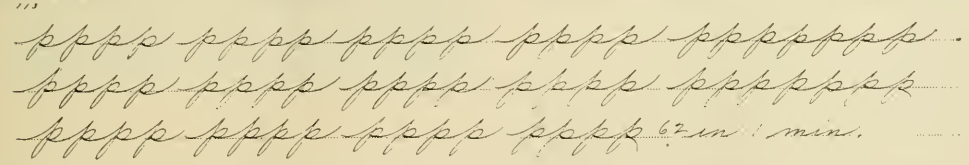 113
pppp pppp pppp pppp ppppppp
pppp pppp pppp pppp ppppppp
pppp pppp pppp pppp 62 in 1 min.